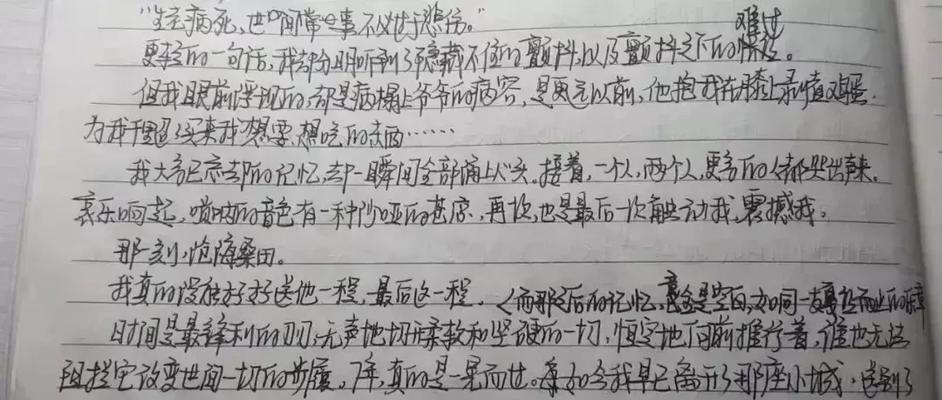 "生老病死,世间常事,不必过于悲伤。"
难过
更轻的一句话,我却分明听到了隐藏不住的颤抖,以及颤抖之下的
但我眼前浮现的,却是病榻上爷爷的病容,是更远以前,他抱我在膝上
为我 买来我想要、想吃的东西……
我大多已忘却的记忆,却一瞬间全部涌上心头。接着,一个人,两个人,更多的人都哭出声来。
哀乐响起,唢呐的音色有一种沙哑的甚凉,再次,也是最后一次触动我,震撼我。
那一刻,沧海桑田。
我真的没能好好送他一程,最后这一程。而那之后的记忆,竟全是空白,如同一支戛然而止的
时间是最锋利的刃,无声地切开柔软和坚硬的一切,恒定地向前推行着,谁也无法
阻拦它改变世间一切的步履。7年,真的是一晃而过。如今我早已离开了那座小城,告别了